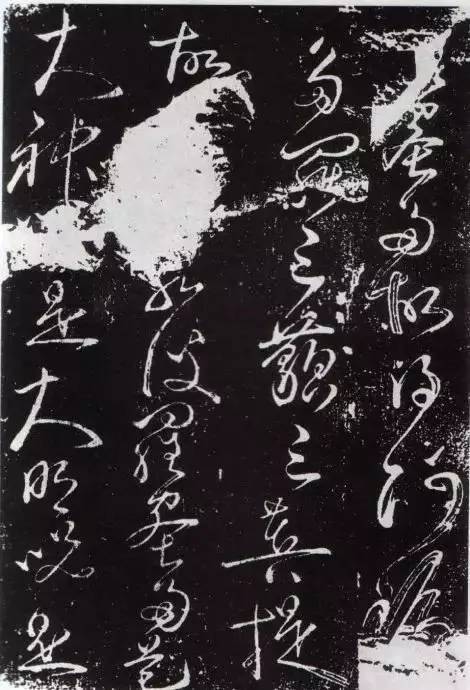 蜜多故得阿耨
多羅三藐三菩提
故 若波羅蜜多是
大神 是大明咒是